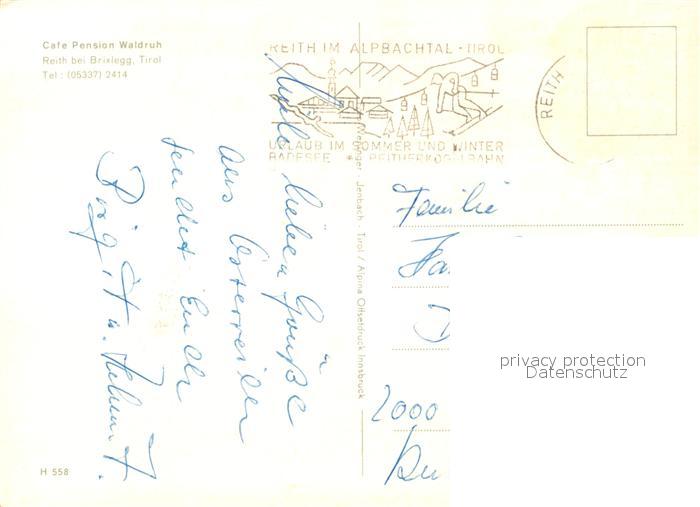 Cafe Pension Waldruh
Reith bei Brixlegg, Tirol
Tel: (05337) 2414
REITH IM ALPBACHTAL · TIROL
URLAUB IM SOMMER UND WINTER
BADESEE * REITHERKOGELBAHN
REITH
liebe Grüße
aus Österreich
sendet Euch
Familie
2000
Jenbach - Tirol / Alpina Offsetdruck Innsbruck
privacy protection
Datenschutz
H 558